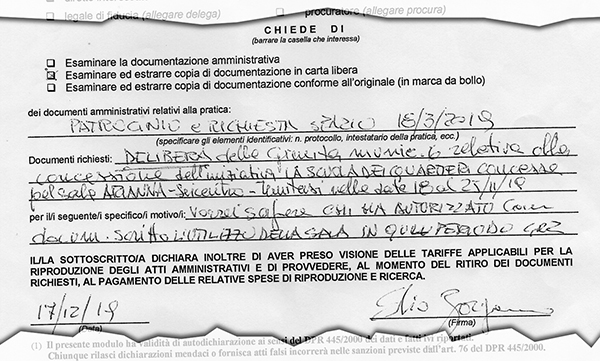 legale di fiducia (allegare delega)
procuratore (allegare procura)
CHIEDE DI
(barrare la casella che interessa)
Esaminare la documentazione amministrativa
Esaminare ed estrarre copia di documentazione in carta libera
Esaminare ed estrarre copia di documentazione conforme all'originale (in marca da bollo)
dei documenti amministrativi relativi alla pratica:
PATROCINIO e RICHIESTA SPAZIO 18/3/2019
(specificare gli elementi identificativi: n. protocollo, intestatario della pratica, ecc.)
Documenti richiesti: DELIBERA della Giunta munic. relativa alla
concessione dell'iniziativa LA SCUOLA DEI QUARTIERI concesse
sala ARIANNA - Seicentro - nelle date 18 al 23/11/19
per il/i seguente/i specifico/i motivo/i: Vorrei sapere CHI HA AUTORIZZATO Con
docum. scritto L'UTILIZZO DELLA SALA IN QUEL PERIODO
IL/LA SOTTOSCRITTO/A DICHIARA INOLTRE DI AVER PRESO VISIONE DELLE TARIFFE APPLICABILI PER LA
RIPRODUZIONE DEGLI ATTI AMMINISTRATIVI E DI PROVVEDERE, AL MOMENTO DEL RITIRO DEI DOCUMENTI
RICHIESTI, AL PAGAMENTO DELLE RELATIVE SPESE DI RIPRODUZIONE E RICERCA.
17/12/19
(Data)
(Firma)
(1) Il presente modulo ha validità di autodichiarazione ai sensi del DPR 445/2000 dei dati e fatti ivi riportati.
Chiunque rilasci dichiarazioni mendaci o fornisca atti falsi incorrerà nelle sanzioni previste dall'art. 76 del DPR 445/2000.